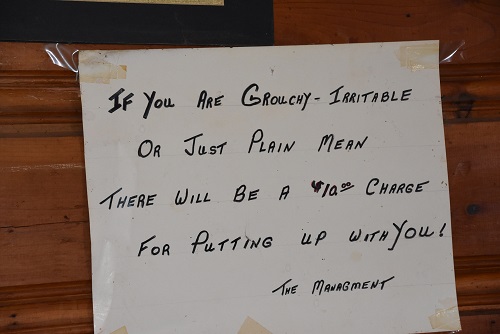 If You Are Grouchy - Irritable
Or Just Plain Mean
There Will Be A $10.00 Charge
For Putting up with You!
The Managment